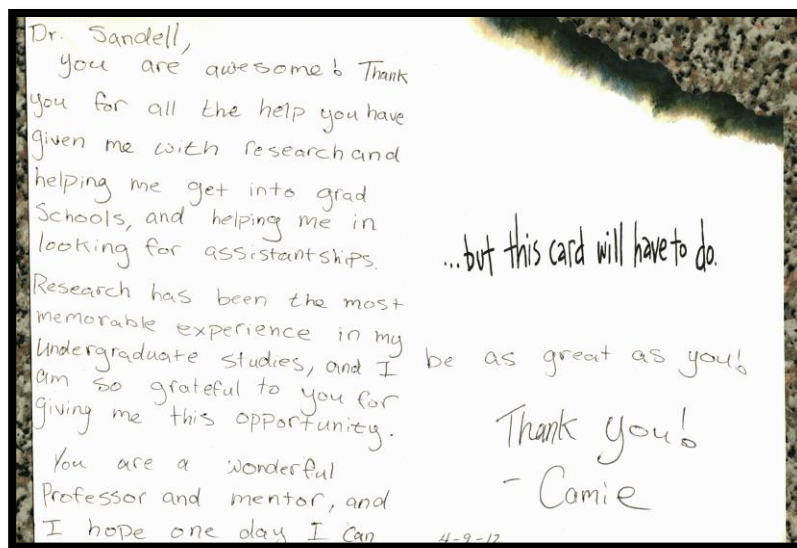 Dr. Sandell,
you are awesome! Thank
you for all the help you have
given me with research and
helping me get into grad
Schools, and helping me in
looking for assistantships.
Research has been the most
memorable experience in my
undergraduate studies, and I
am so grateful to you for
giving me this opportunity.
You are a wonderful
Professor and mentor, and
I hope one day I can
...but this card will have to do.
be as great as you!
Thank you!
- Camie
4-9-12